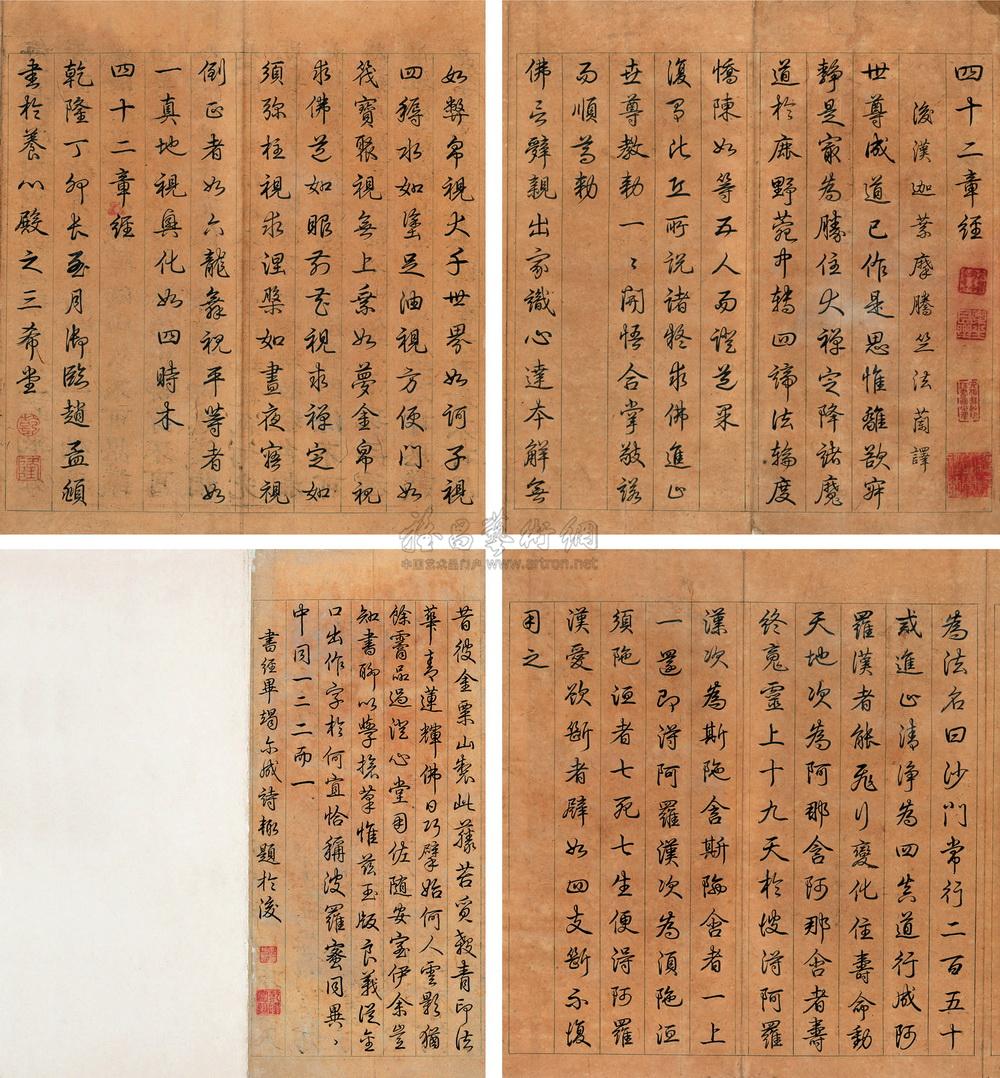 四十二章經
後漢迦葉摩騰竺法蘭譯
世尊成道已作是思惟離欲寂
靜是最為勝住大禪定降諸魔
道於鹿野苑中轉四諦法輪度
憍陳如等五人而證道果
復有比丘所說諸疑求佛進止
世尊教勅一〻開悟合掌敬諾
而順尊勅
佛言辭親出家識心達本解無
為法名曰沙門常行二百五十
戒進止清淨為四真道行成阿
羅漢者能飛行變化住壽命動
天地次為阿那含阿那含者壽
終魂靈上十九天於彼得阿羅
漢次為斯陁含斯陁含者一上
一還即得阿羅漢次為須陁洹
須陁洹者七死七生便得阿羅
漢愛欲斷者譬如四支斷不復
用之
如弊帛視大千世界如訶子視
四耨水如塗足油視方便門如
筏寶聚視無上乘如夢金帛視
求佛道如眼前花視求禪定如
須弥柱視求涅槃如晝夜寤視
倒正者如六龍舞視平等者如
一真地視興化如四時木
四十二章經
乾隆丁卯長至月御臨趙孟頫
書於養心殿之三希堂
乾
隆
昔彼金粟山製此藤苔質穀青印法
華青蓮輝佛日巧擘始何人雲影猶
餘霱品過澄心堂用佐隨安室伊余豈
知書聊以學搶筆惟茲玉版良義從金
口出作字於何宜恰稱波羅蜜同異〻
中同一三二而一
書經畢偶爾成詩輒題於後
雅昌藝術網
中国艺术品门户 www.artron.net